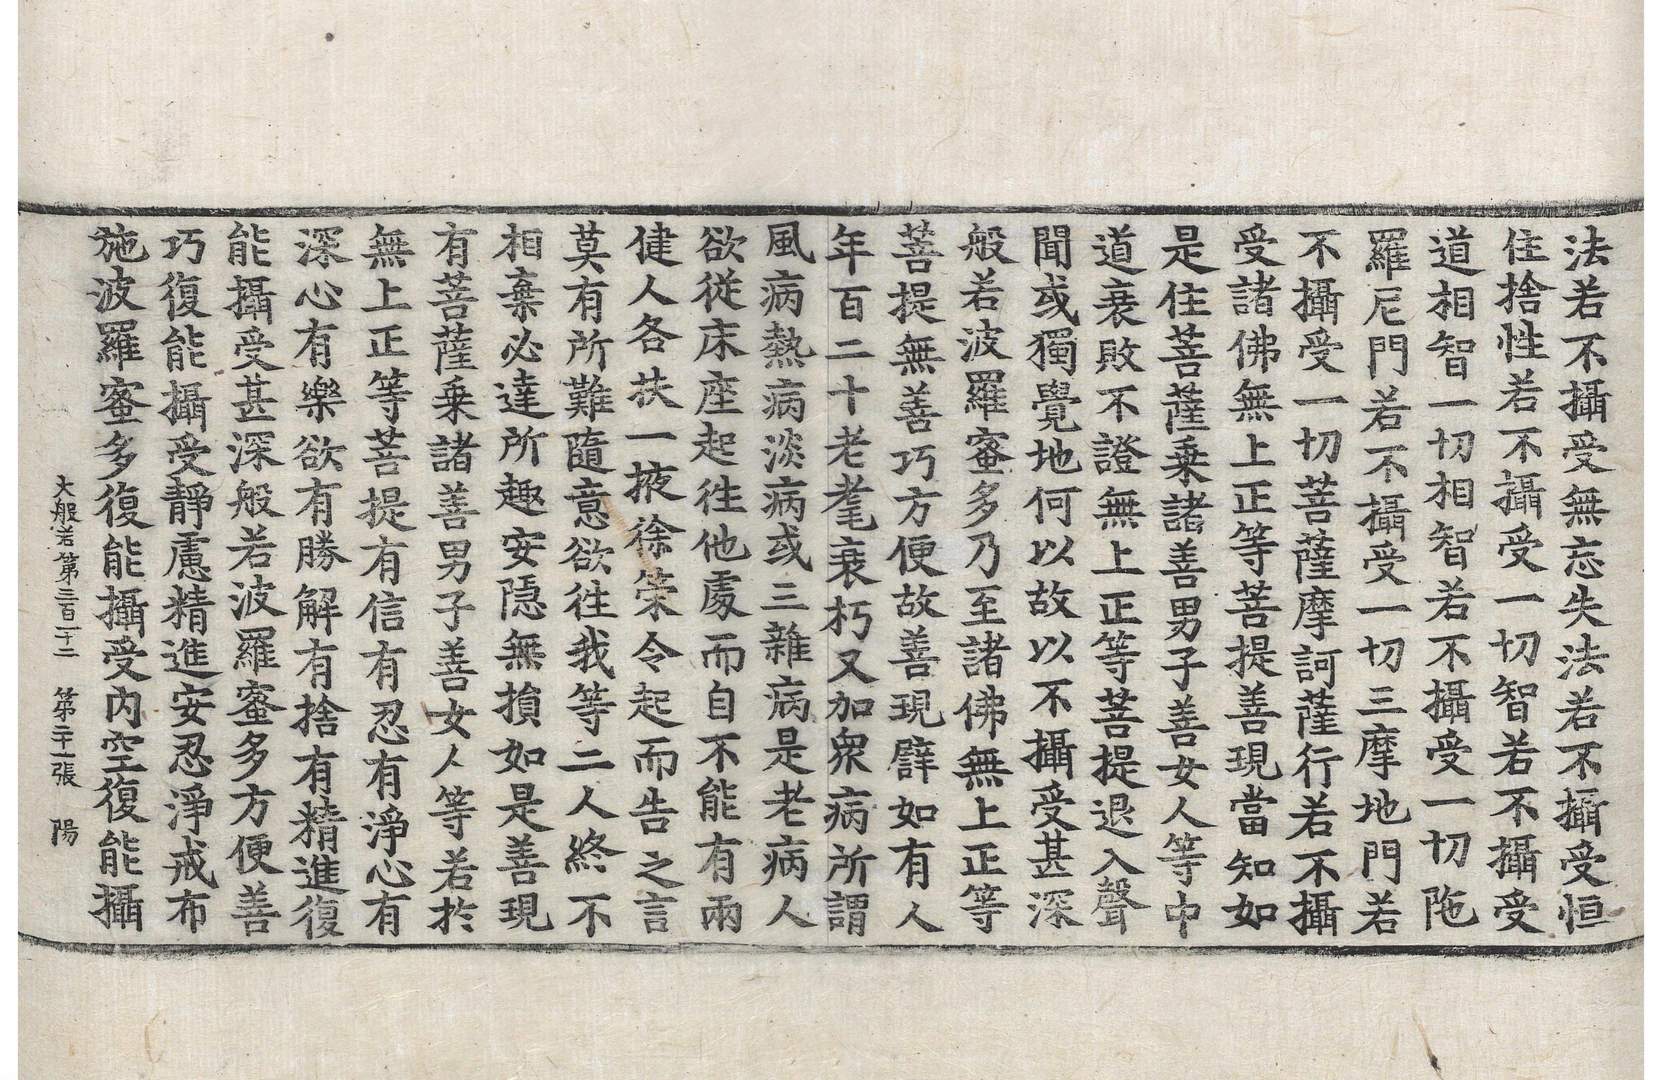 法若不攝受無忘失法若不攝受恒
住捨性若不攝受一切智若不攝受
道相智一切相智若不攝受一切陁
羅尼門若不攝受一切三摩地門若
不攝受一切菩薩摩訶薩行若不攝
受諸佛無上正等菩提善現當知如
是住菩薩乗諸善男子善女人等中
道衰敗不證無上正等菩提退入聲
聞或獨覺地何以故以不攝受甚深
般若波羅蜜多乃至諸佛無上正等
菩提無善巧方便故善現譬如有人
年百二十老耄衰朽又加衆病所謂
風病熱病淡病或三雜病是老病人
欲從床座起往他處而自不能有兩
健人各扶一掖徐策令起而告之言
莫有所難隨意欲往我等二人終不
相棄必達所趣安隱無損如是善現
有菩薩乗諸善男子善女人等若於
無上正等菩提有信有忍有淨心有
深心有樂欲有勝解有捨有精進復
能攝受甚深般若波羅蜜多方便善
巧復能攝受靜慮精進安忍淨戒布
施波羅蜜多復能攝受内空復能攝
大般若第三百一十二 第二十一張 陽